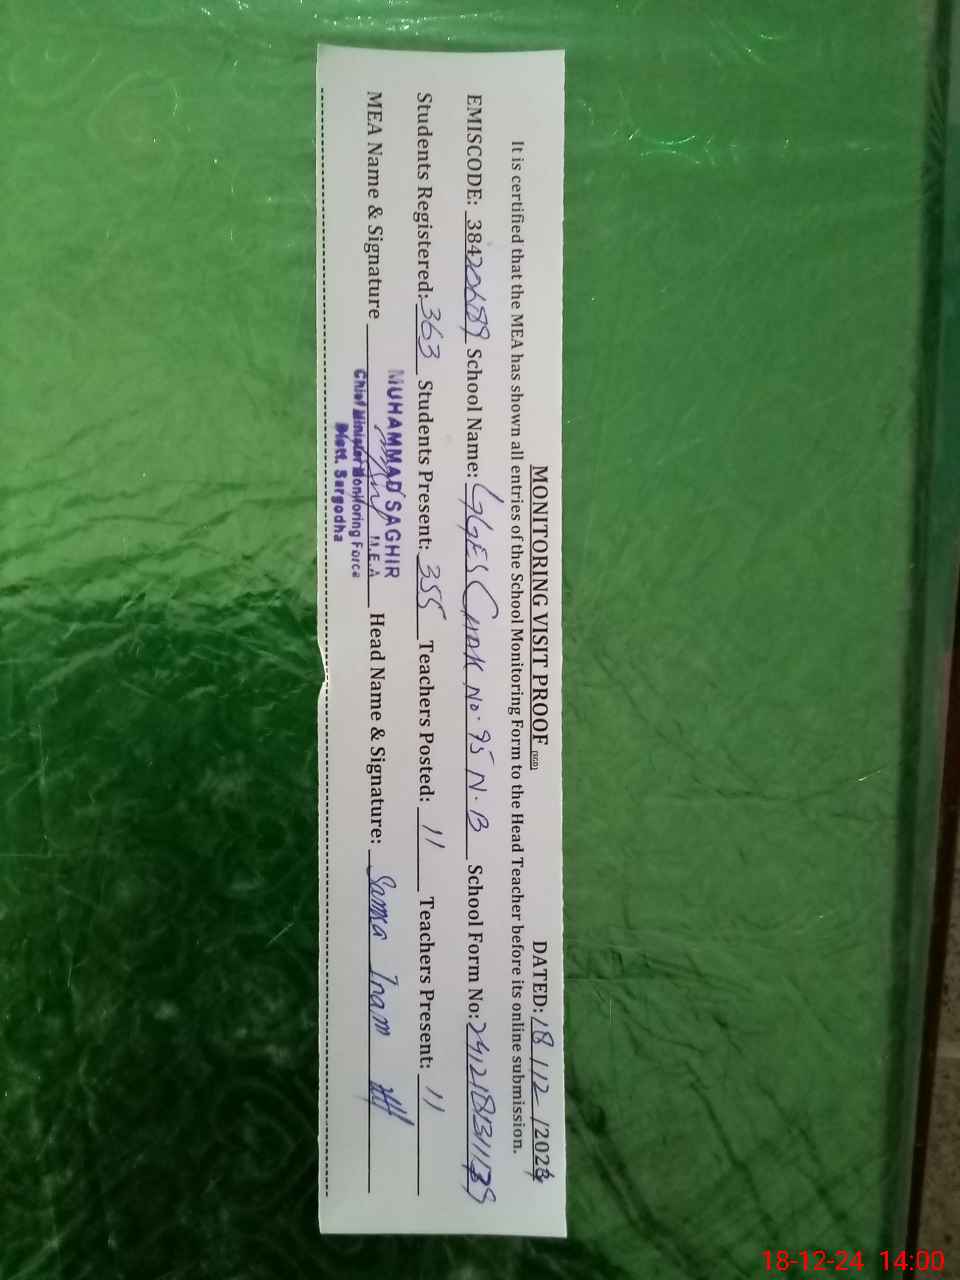 MONITORING VISIT PROOF (SGD) DATED: 18 /12 /2024
It is certified that the MEA has shown all entries of the School Monitoring Form to the Head Teacher before its online submission.
EMISCODE: 38420689 School Name: GGES Chak No. 95 N.B School Form No:
Students Registered: 363 Students Present: 355 Teachers Posted: 11 Teachers Present: 11
MEA Name & Signature Head Name & Signature: Inam
MUHAMMAD SAGHIR
M.E.A
Chief Minister Monitoring Force
Distt. Sargodha
18-12-24 14:00